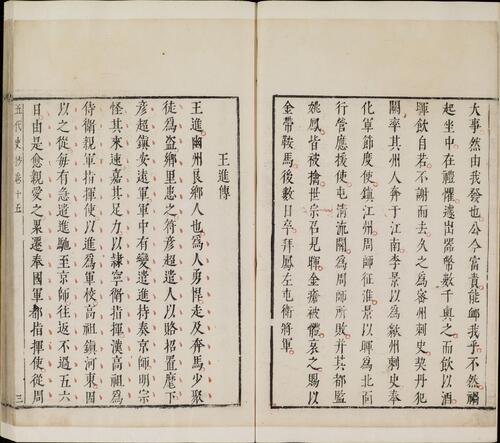 大事然由我發也公今富貴能卹我乎不然禍
起坐中在禮懼遽出器幣數千與之而飲以酒
暉飲自若不謝而去久之爲密州刺史契丹犯
闕率其州人奔于江南李景以爲歙州刺史奉
化軍節度使鎮江州周師征淮景以暉爲北面
行營應援使屯清流關爲周師所敗并其都監
姚鳳皆被擒世宗召見暉金瘡被體哀之賜以
金帶鞍馬後數日卒拜鳳左屯衛將軍
王進傳
王進幽州良鄉人也爲人勇悍走及奔馬少聚
徒爲盜鄉里患之符彥超遣人以賂招置麾下
彥超鎮安遠軍軍中有變遣進持奏京師明宗
怪其來速嘉其足力以隸寧衛指揮漢高祖爲
侍衛親軍指揮使以進爲軍校高祖鎮河東因
以之從每有急遣進馳至京師往返不過五六
日由是愈親愛之累遷奉國軍都指揮使從周
五代史抄卷十五
三